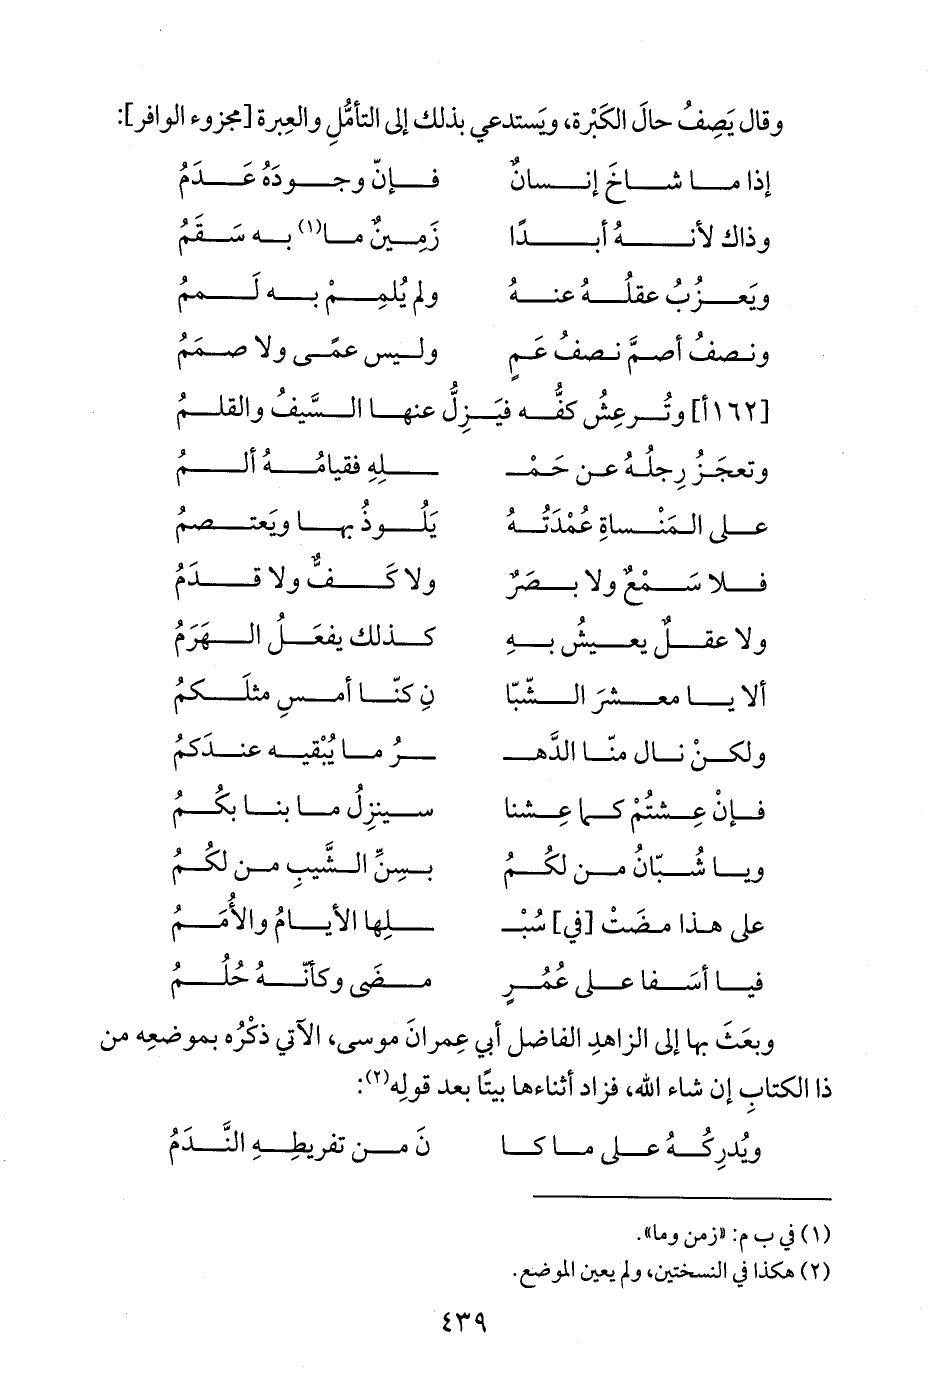 وقال يَصِفُ حالَ الكَبْرة، ويَستدعي بذلك إلى التأمُّلِ والعِبرة [مجزوء الوافر]:
إذا ما شاخَ إنسانٌ فإنّ وجودَهُ عَدَمُ
وذاك لأنهُ أبدًا زَمِينٌ ما(١) به سَقَمُ
ويَعزُبُ عقلُهُ عنهُ ولم يُلمِمْ به لَممُ
ونصفُ أصمَّ نصفُ عَمٍ وليس عمًى ولا صمَمُ
[١٦٢أ] وتُرعِشُ كفُّه فيَزِلُّ عنها السَّيفُ والقلمُ
وتعجَزُ رِجلُهُ عن حَمْـ ـلِهِ فقيامُهُ ألمُ
على المَنْساةِ عُمْدَتُهُ يَلُوذُ بها ويَعتصمُ
فلا سَمْعٌ ولا بصَرٌ ولا كَفٌّ ولا قدَمُ
ولا عقلٌ يعيشُ بهِ كذلك يفعَلُ الهَرَمُ
ألا يا معشرَ الشّبّا نِ كنّا أمسِ مثلَكمُ
ولكنْ نال منّا الدَّهـ ـرُ ما يُبْقيه عندَكمُ
فإنْ عِشتُمْ كما عِشنا سينزِلُ ما بنا بكُمُ
ويا شُبّانُ من لكُمُ بسِنِّ الشَّيبِ من لكُمُ
على هذا مضَتْ [في] سُبْـ ـلِها الأيامُ والأُمَمُ
فيا أسَفا على عُمُرٍ مضَى وكأنّهُ حُلُمُ
وبعَثَ بها إلى الزاهدِ الفاضل أبي عِمرانَ موسى، الآتي ذكْرُه بموضعِه من
ذا الكتابِ إن شاء الله، فزاد أثناءها بيتًا بعد قولِه(٢):
ويُدرِكُهُ على ما كا نَ من تفريطِهِ النَّدَمُ
(١) في ب م: «زمن وما».
(٢) هكذا في النسختين، ولم يعين الموضع.
٤٣٩